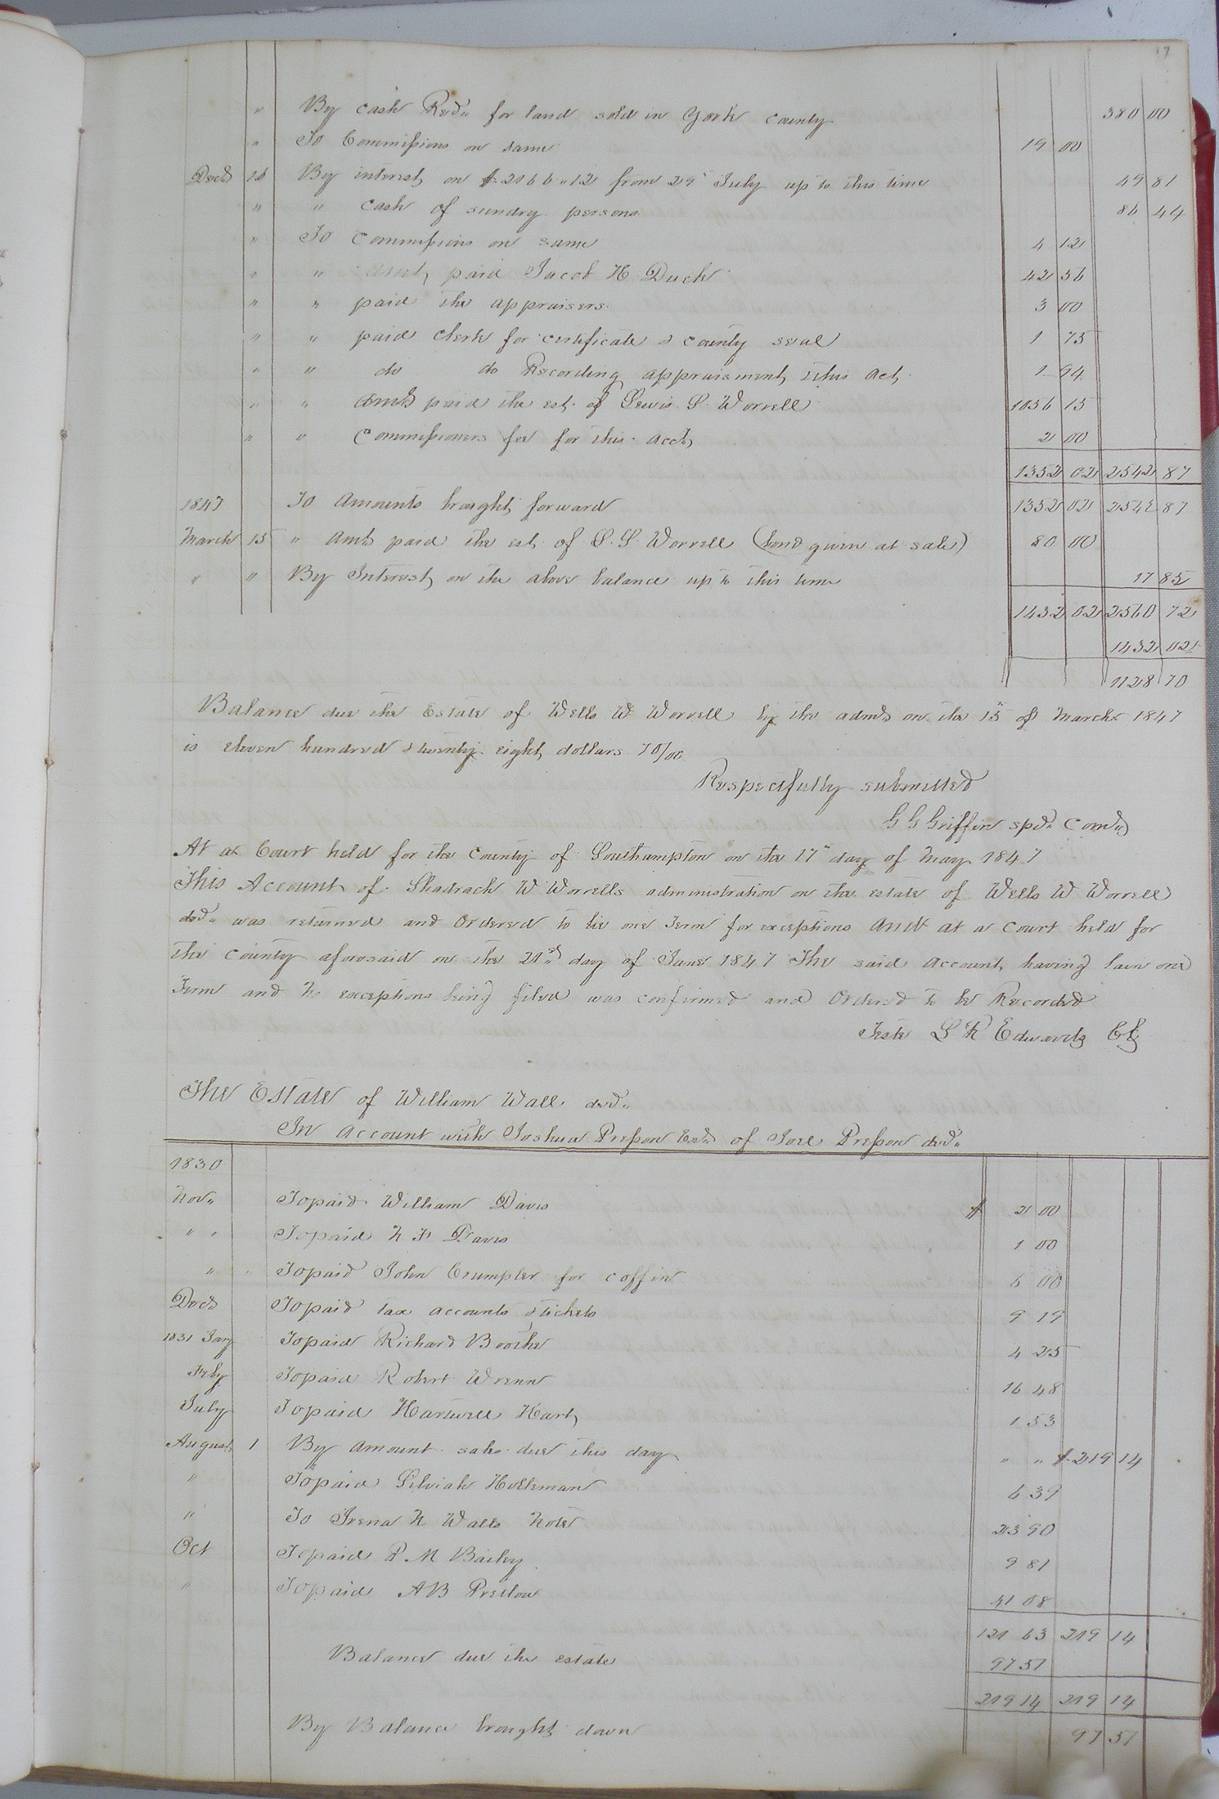 " By cash Recd. for land sold in York county 380 00
" To Commissions on same 19 00
Decr 18 By interest on $2166.12 from 29th July up to this time 49 81
" " cash of sundry persons 86 44
" To Commissions on same 4 12
" " Amt paid Jacob H Duck 42 36
" " paid the appraisers 3 00
" " paid clerk for certificate & county seal 1 75
" " do do Recording appraisment & this act 1 94
" " Amt paid the est. of Lewis S. Worrell 1036 15
" " Commissioners fee for this acct 2 00
1352 02 2542 87
1847 To Amounts brought forward 1352 02 2542 87
March 15 " Amt paid the est. of L. S. Worrell (bond given at sale) 80 00
" " By Interest on the above balance up to this time 17 85
1432 02 2560 72
1432 02
1128 70
Balance due the Estate of Wells W Worrell by the admr on the 15th of March 1847
is eleven hundred & twenty eight dollars 70/00
Respectfully submitted
G G Griffin spd. Comr.
At a Court held for the County of Southampton on the 17th day of May 1847
This Account of Shadrach W Worrells administration on the estate of Wells W Worrell
decd. was returned and Ordered to lie one Term for exceptions And at a Court held for
the county aforesaid on the 21st day of June 1847 The said Account having lain one
Term and no exceptions being filed was confirmed and Ordered to be Recorded
Teste L R Edwards Clk
The Estate of William Wall decd.
In Account with Joshua Presson Exr. of Joel Presson decd.
1830
Nov. To paid William Davis $ 2 00
" " To paid N F Davis 1 00
" To paid John Crumpler for coffin 6 00
Decr To paid tax accounts & tickets 9 19
1831 Jany To paid Richard Boothe 4 25
Feby To paid Robert Wrenn 16 48
July To paid Hartwell Hart 1 53
August 1 By amount sales due this day " " $219 14
" To paid Silviah Holleman 6 39
" To Irena N Walls Note 23 90
Oct To paid P M Bailey 9 81
" To paid A B Preston 41 08
121 63 219 14
Balance due the estate 97 51
219 14 219 14
By Balance brought down 97 51